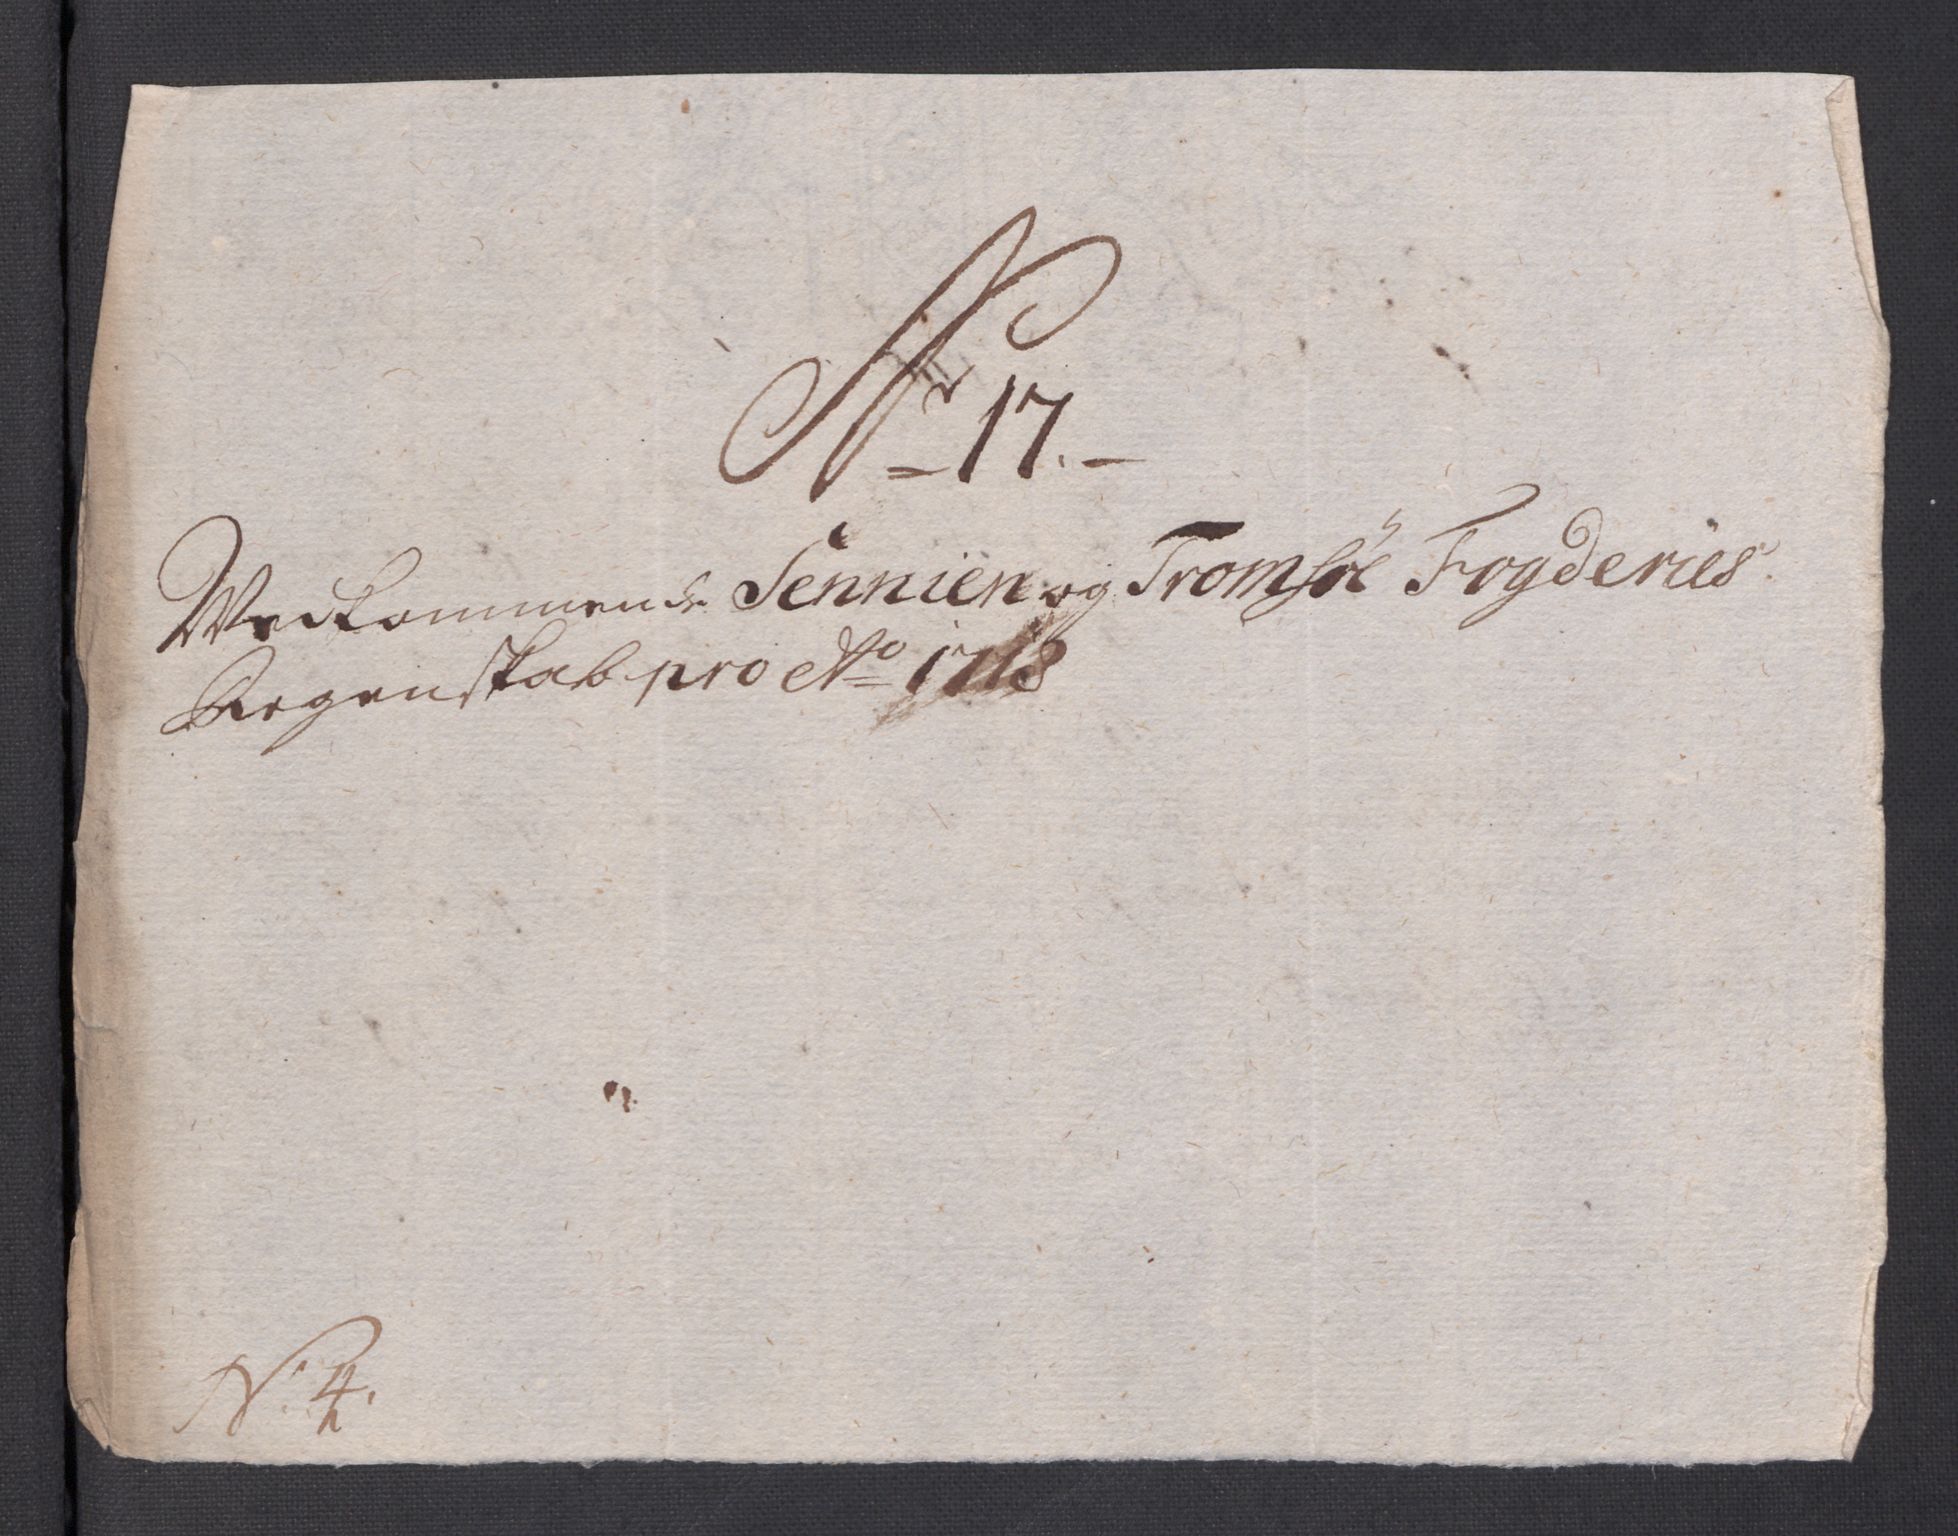 Nr 17.
Wedkommende Sennien og Tromsöe Fogderies
Regenskab pro Ao 1718
N. 4.